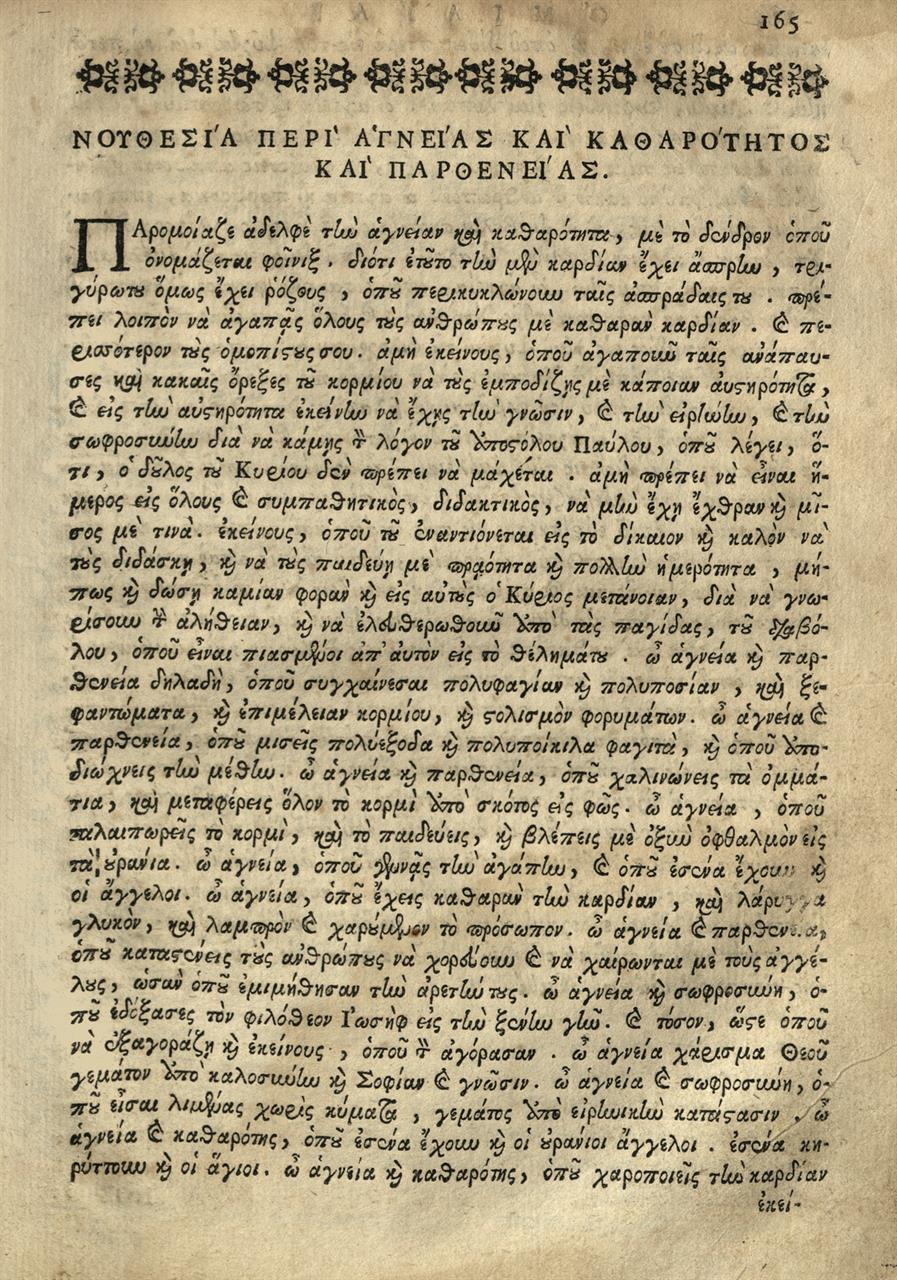 165
ΝΟΥΘΕΣΙΆ ΠΕΡΙ᾽ ΑΓΝΕΙΆΣ ΚΑΙ᾽ ΚΑΘΑΡΟΤΗΤΟΣ
ΚΑΙ᾽ ΠΑΡΘΕΝΕΙΆΣ.
ΠΑρομοίαζε ἀδελφὲ τὴν ἁγνείαν καὶ καθαρότητα, μὲ τὸ δένδρον ὁποῦ
ὀνομάζεται φοῖνιξ. διότι ἐτοῦτο τὴν μὲν καρδίαν ἔχει ἄσπρην, τρι-
γύρωτου ὅμως ἔχει ῥόζους, ὁποῦ περικυκλώνουν ταῖς ἀσπράδαις του. πρέ-
πει λοιπὸν νὰ ἀγαπᾷς ὅλους τοὺς ἀνθρώπους μὲ καθαρὰν καρδίαν. καὶ πε-
ρισσότερον τοὺς ὁμοπίστους σου. ἀμὴ ἐκείνους, ὁποῦ ἀγαποῦν ταῖς ἀνάπαυ-
σες καὶ κακαῖς ὄρεξες τοῦ κορμίου νὰ τοὺς ἐμποδίζῃς μὲ κάποιαν ἀυστηρότητα,
καὶ εἰς τὴν αὐστηρότητα ἐκείνην νὰ ἔχῃς τὴν γνῶσιν, καὶ τὴν εἰρήνην, καὶ τὴν
σωφροσύνην διὰ νὰ κάμῃς τὸν λόγον τοῦ Ἀποστόλου Παύλου, ὁποῦ λέγει, ὅ-
τι, ὁ δοῦλος τοῦ Κυρίου δὲν πρέπει νὰ μάχεται. ἀμὴ πρέπει νὰ εἶναι ἥ-
μερος εἰς ὅλους καὶ συμπαθητικὸς, διδακτικὸς, νὰ μὴν ἔχῃ ἔχθραν καὶ μῖ-
σος μὲ τινὰ. ἐκείνους, ὁποῦ τοῦ ἐναντιόνεται εἰς τὸ δίκαιον καὶ καλὸν νὰ
τοὺς διδάσκῃ, καὶ νὰ τοὺς παιδεύῃ μὲ πραότητα καὶ πολλὴν ἡμερότητα, μή-
πως καὶ δώσῃ καμίαν φορὰν καὶ εἰς αὐτοὺς ὁ Κύριος μετάνοιαν, διὰ νὰ γνω-
ρίσουν τὴν ἀλήθειαν, καὶ νὰ ἐλευθερωθοῦν ἀπὸ τὰς παγίδας, τοῦ διαβό-
λου, ὁποῦ εἶναι πιασμένοι απ᾽ αὐτὸν εἰς τὸ θέλημάτου. ὦ ἁγνεία καὶ παρ-
θενεία δηλαδὴ, ὁποῦ συγχαίνεσαι πολυφαγίαν καὶ πολυποσίαν, καὶ ξε-
φαντώματα, καὶ ἐπιμέλειαν κορμίου, καὶ στολισμὸν φορυμάτων. ὦ ἁγνεία καὶ
παρθενεία, ὁποῦ μισεῖς πολυέξοδα καὶ πολυποίκιλα φαγιτὰ, καὶ ὁποῦ ἀπο-
διώχνεις τὴν μέθην. ὦ ἁγνεία καὶ παρθενεία, ὁποῦ χαλινώνεις τὰ ὀμμά-
τια, καὶ μεταφέρεις ὅλον τὸ κορμὶ ἀπὸ σκότος εἰς φῶς. ὦ ἁγνεία, ὁποῦ
ταλαιπωρεῖς τὸ κορμὶ, καὶ τὸ παιδεύεις, καὶ βλέπεις μὲ ὀξὺν ὀφθαλμὸν εἰς
τὰ οὐράνια. ὦ ἁγνεία, ὁποῦ γεννᾷς τὴν ἀγάπην, καὶ ὁποῦ ἐσένα ἔχουν καὶ
οἱ ἄγγελοι. ὦ ἁγνεία, ὁποῦ ἔχεις καθαρὰν τὴν καρδίαν, καὶ λάρυγγα
γλυκὸν, καὶ λαμπρὸν καὶ χαρούμενον τὸ πρόσωπον. ὦ ἁγνεία καὶ παρθενεία,
ὁποῦ καταστένεις τοὺς ἀνθρώπους νὰ χορεύουν καὶ νὰ χαίρωνται μὲ τοὺς ἀγγέ-
λους, ὡσὰν ὁποῦ ἐμιμήθησαν τὴν ἀρετήν τους. ὦ ἁγνεία καὶ σωφροσύνη, ὁ-
ποῦ ἐδόξασες τὸν φιλόθεον Ἰωσὴφ εἰς τὴν ξένην γῆν. καὶ τόσον, ὥστε ὁποῦ
νὰ ἐξαγοράζῃ καὶ ἐκείνους, ὁποῦ τὸν ἀγόρασαν. ὦ ἁγνεία χάρισμα Θεοῦ
γεμάτον ἀπὸ καλοσύνην καὶ Σοφίαν καὶ γνῶσιν. ὦ ἁγνεία καὶ σωφροσύνη, ὁ-
ποῦ εἶσαι λιμένας χωρὶς κύματα, γεμάτος ἀπὸ εἰρηνικὴν κατάστασιν. ὦ
ἁγνεία καὶ καθαρότης, ὁποῦ ἐσένα ἔχουν καὶ οἱ οὐράνιοι ἄγγελοι. ἐσένα κη-
ρύττουν καὶ οἱ ἅγιοι. ὦ ἁγνεία καὶ καθαρότης, ὁποῦ χαροποιεῖς τὴν καρδίαν
ἐκεί-